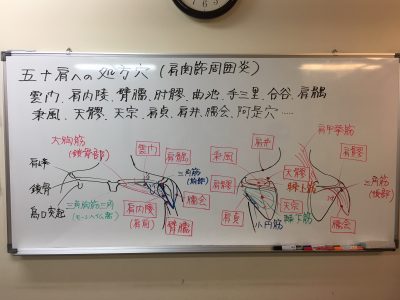 五十肩への処方穴(肩関節周囲炎)
雲門、肩内陵、臂臑、肘髎、曲池、手三里、合谷、肩髃
秉風、天髎、天宗、肩貞、肩井、臑会、阿是穴……
大胸筋
(鎖骨部)
肩峰
鎖骨
烏口突起
三角胸筋三角
雲門
肩髃
三角筋
(前部)
肩内陵
(肩前)
臂臑
臑会
秉風
肩井
肩髎
肩貞
小円筋
天髎
棘上筋
天宗
棘下筋
肩甲挙筋
肩髎
三角筋
(後部)
臑会